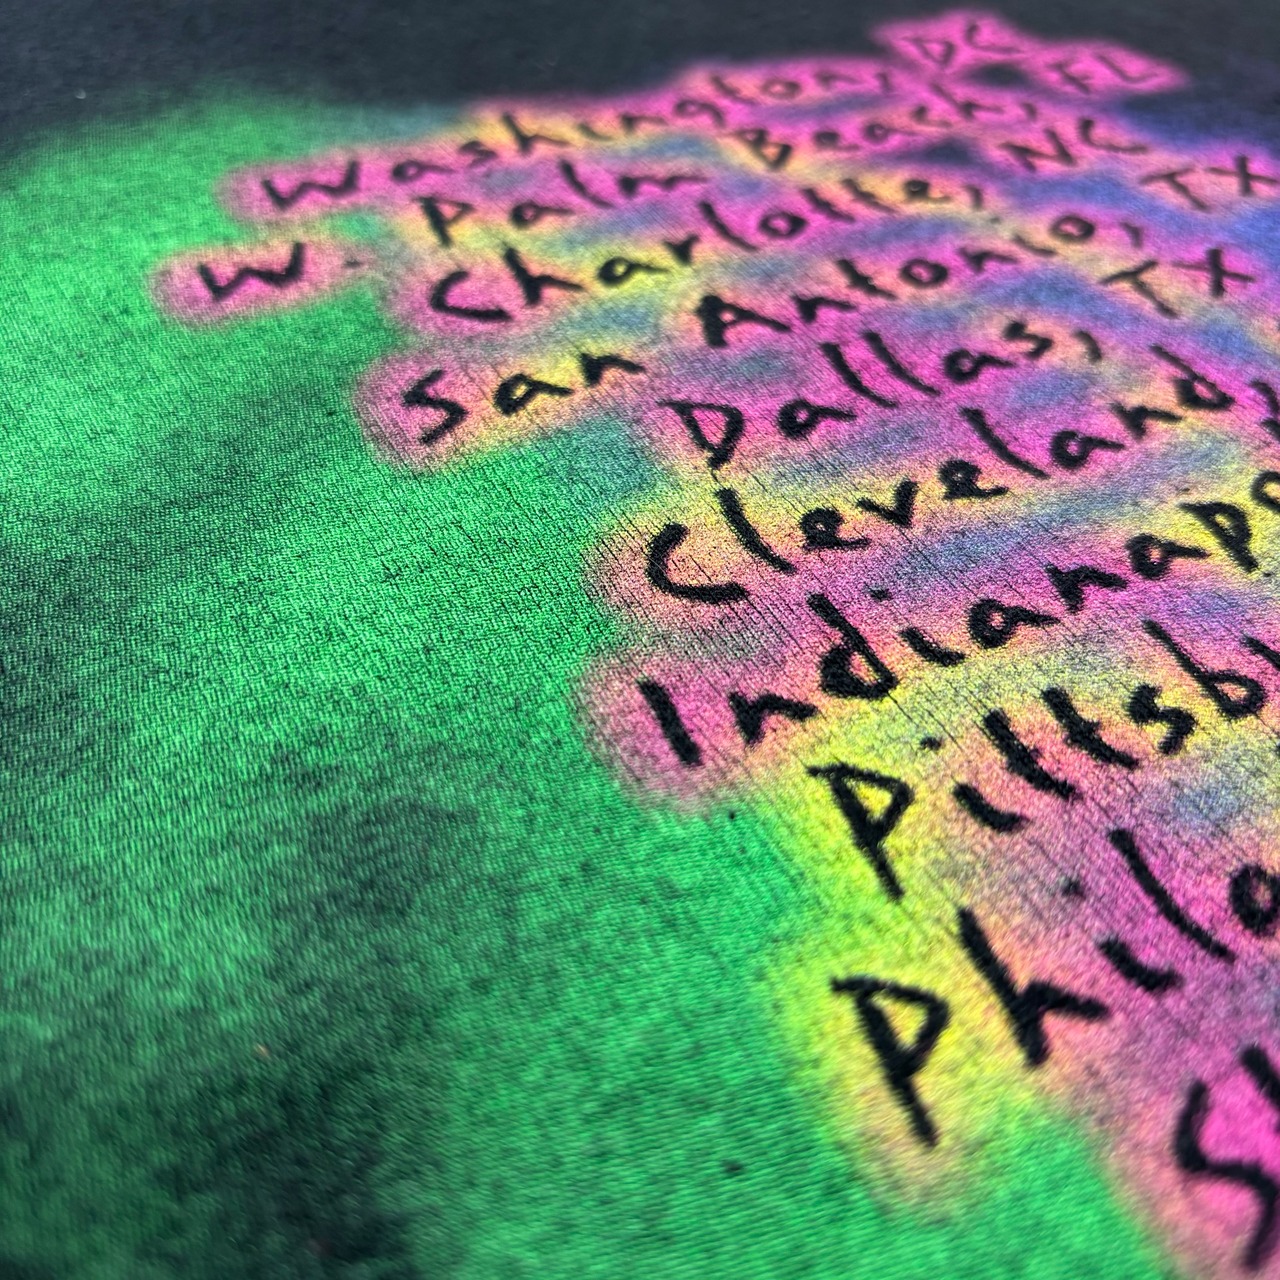 Washington, DC
W. Palm Beach, FL
Charlotte, NC
San Antonio, TX
Dallas, TX
Cleveland,
Indianapo
Pittsbu
Phila